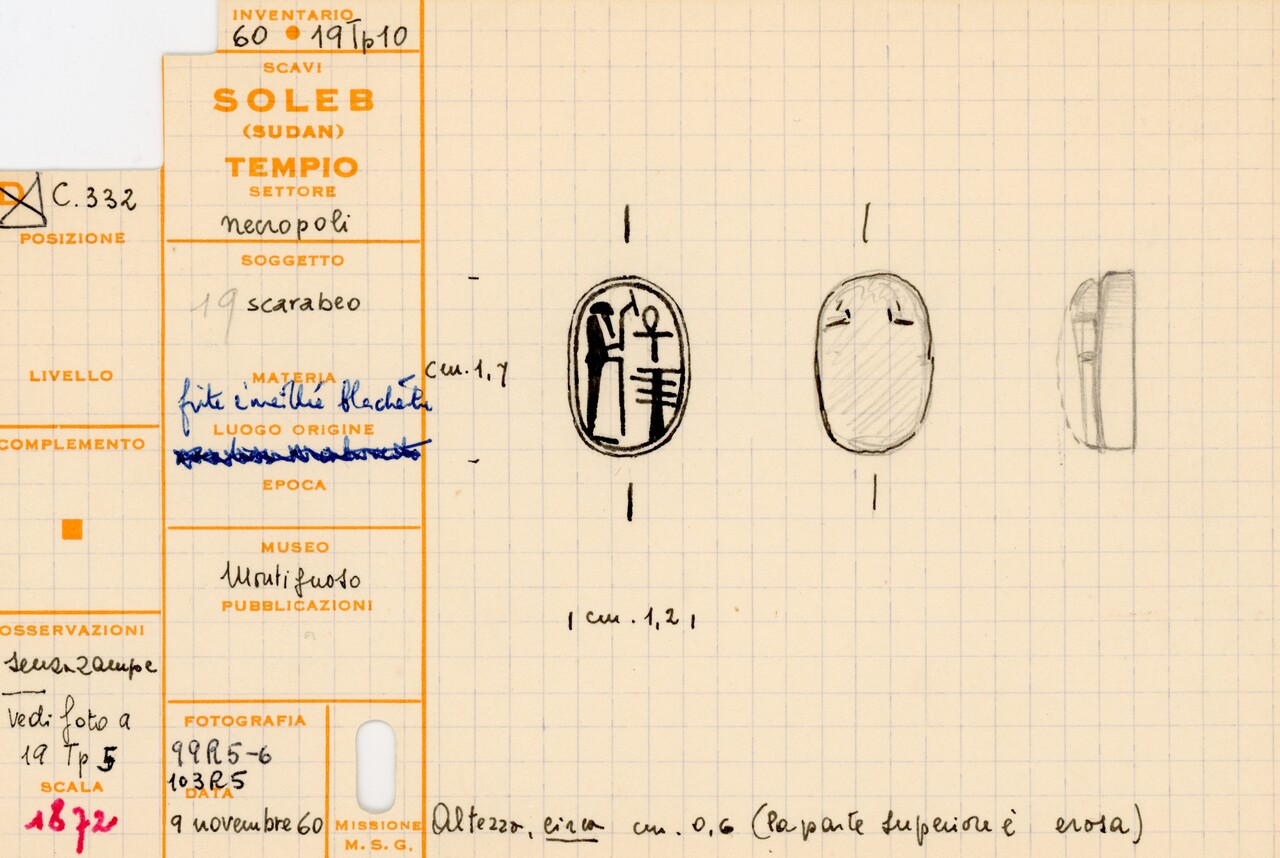 INVENTARIO
60 • 19Tp10
SCAVI
SOLEB
(SUDAN)
TEMPIO
SETTORE
necropoli
C.332
POSIZIONE
SOGGETTO
19 scarabeo
LIVELLO
MATERIA
LUOGO ORIGINE
COMPLEMENTO
EPOCA
cm. 1,7
MUSEO
Montignoso
PUBBLICAZIONI
cm. 1,2
OSSERVAZIONI
senza zampe
Vedi foto a
19 Tp 5
SCALA
1872
FOTOGRAFIA
99R5-6
103R5
DATA
9 novembre 60
MISSIONE
M. S. G.
Altezza, circa cm. 0,6 (la parte superiore è erosa)